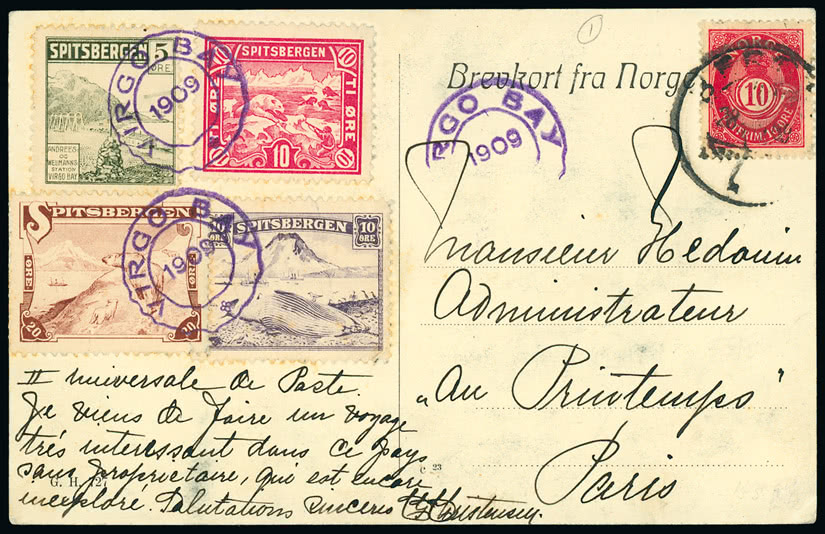 SPITSBERGEN 5
ØRE
ANDRÉES-
OG
WELLMANNS-
STATION
VIRGO BAY
VIRGO BAY
1909
10 SPITSBERGEN 10
TI ØRE
10
SPITSBERGEN
ØRE
20
20
VIRGO BAY
1909
10 ØRE SPITSBERGEN 10 ØRE
Brevkort fra Norge
RGO BAY
1909
NORGE
10
FRIM. 10 ØRE
Monsieur Hedouin
Administrateur
„Au Printemps"
Paris
II Universale de Poste.
Je viens de faire un voyage
très interessant dans ce pays
sans proprietaire, qui est encore
inexploré. Salutations sinceres Christensen.
G. H. 127
c 23
1